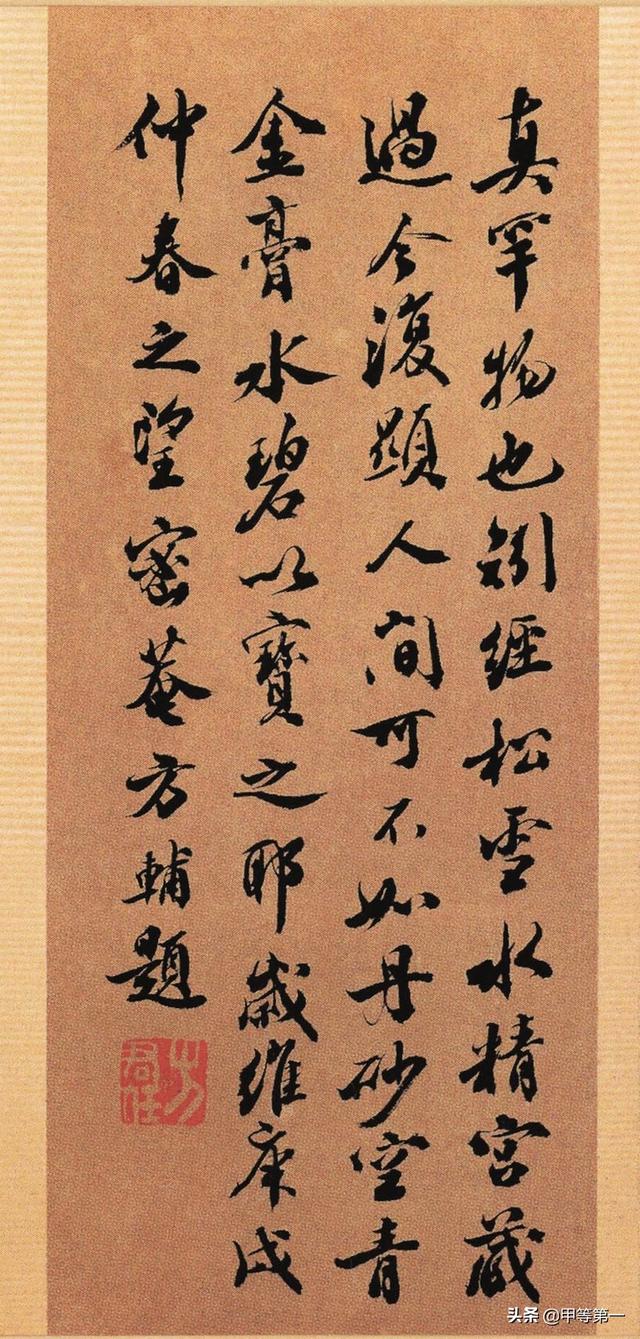 真罕物也矧經松雪水精宮藏
過今復顯人間可不如丹砂空青
金膏水碧以寶之耶歲維庚戌
仲春之望密菴方輔題
頭条 @甲等第一